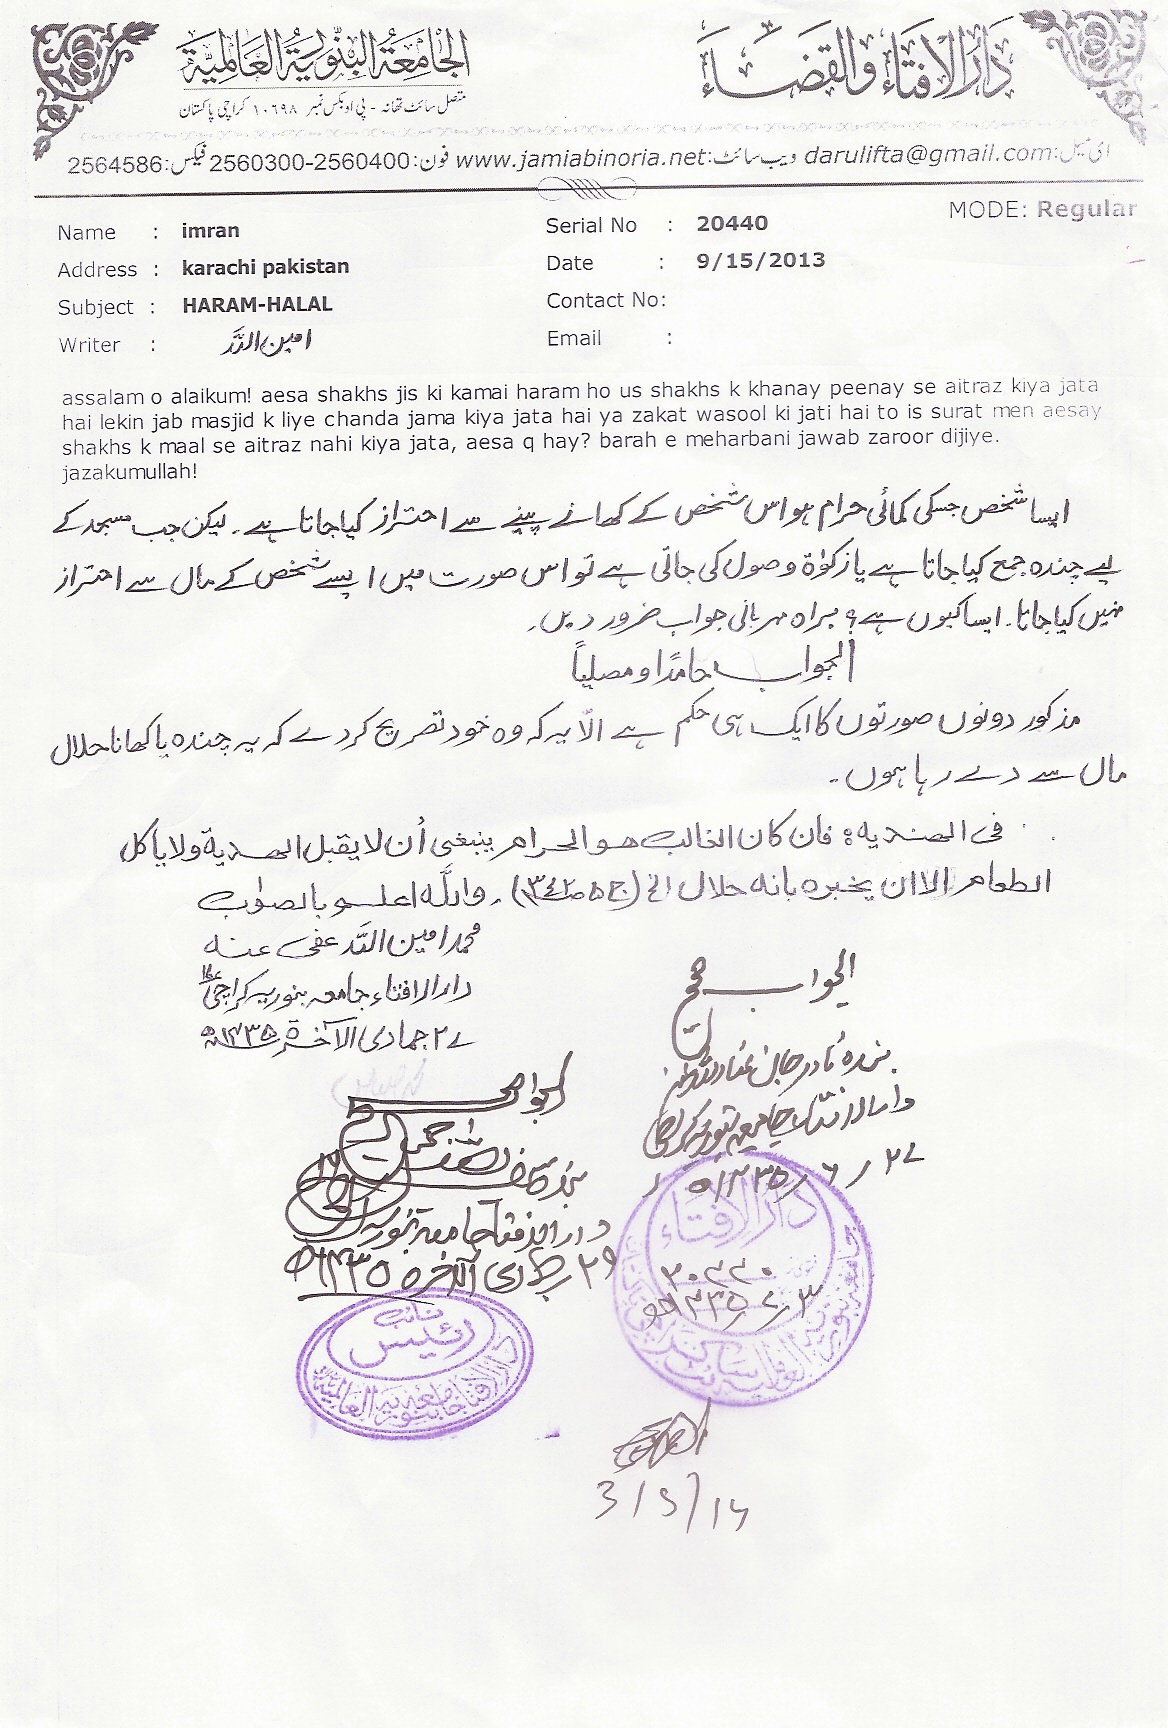 دَارُ الإفتَاء وَالقَضَاء
الجَامعَةُ البِنّوریَةُ العَالمیَّة
متصل سائٹ تھانہ - پی او بکس نمبر ۱۰۶۹۸ کراچی پاکستان
ای میل:darulifta@gmail.com ویب سائٹ:www.jamiabinoria.net فون:2560300-2560400 فیکس:2564586
MODE: Regular
Name : imran
Serial No : 20440
Address : karachi pakistan
Date : 9/15/2013
Subject : HARAM-HALAL
Contact No:
Writer : امین اللہ
Email :
assalam o alaikum! aesa shakhs jis ki kamai haram ho us shakhs k khanay peenay se aitraz kiya jata
hai lekin jab masjid k liye chanda jama kiya jata hai ya zakat wasool ki jati hai to is surat men aesay
shakhs k maal se aitraz nahi kiya jata, aesa q hay? barah e meharbani jawab zaroor dijiye.
jazakumullah!
ایسا شخص جسکی کمائی حرام ہو اس شخص کے کھانے پینے سے احتراز کیا جاتا ہے۔ لیکن جب مسجد کے
لیے چندہ جمع کیا جاتا ہے یا زکوٰۃ وصول کی جاتی ہے تو اس صورت میں ایسے شخص کے مال سے احتراز
نہیں کیا جاتا۔ ایسا کیوں ہے؟ براہ مہربانی جواب ضرور دیں۔
الجواب حامدًا ومصلیاً
مذکور دونوں صورتوں کا ایک ہی حکم ہے الّا یہ کہ وہ خود تصریح کر دے کہ یہ چندہ یا کھانا حلال
مال سے دے رہا ہوں۔
فی الھندیہ: فان کان الغالب ھو الحرام ینبغی أن لا یقبل الھدیۃ ولا یاکل
الطعام الا ان یخبرہ بانہ حلال الخ (ج۵ ص۳۴۲)۔ واللّٰہ اعلم بالصواب
محمد امین اللہ عفی عنہ
دار الافتاء جامعہ بنوریہ کراچی
۲۷ جمادی الآخرۃ ۱۴۳۵ھ
الجواب صحیح
بندہ نادر جان
دار الافتاء جامعہ بنوریہ کراچی
۲۷ / ۶ / ۱۴۳۵ھ
الجواب صحیح
بندہ
دار الافتاء جامعہ بنوریہ
۲۹ جمادی الآخرہ ۱۴۳۵ھ
دَارُ الإفتَاء
۲۰۴۴۰
نائب
رئیس
دار الافتاء جامعہ بنوریہ العالمیہ
3/5/14